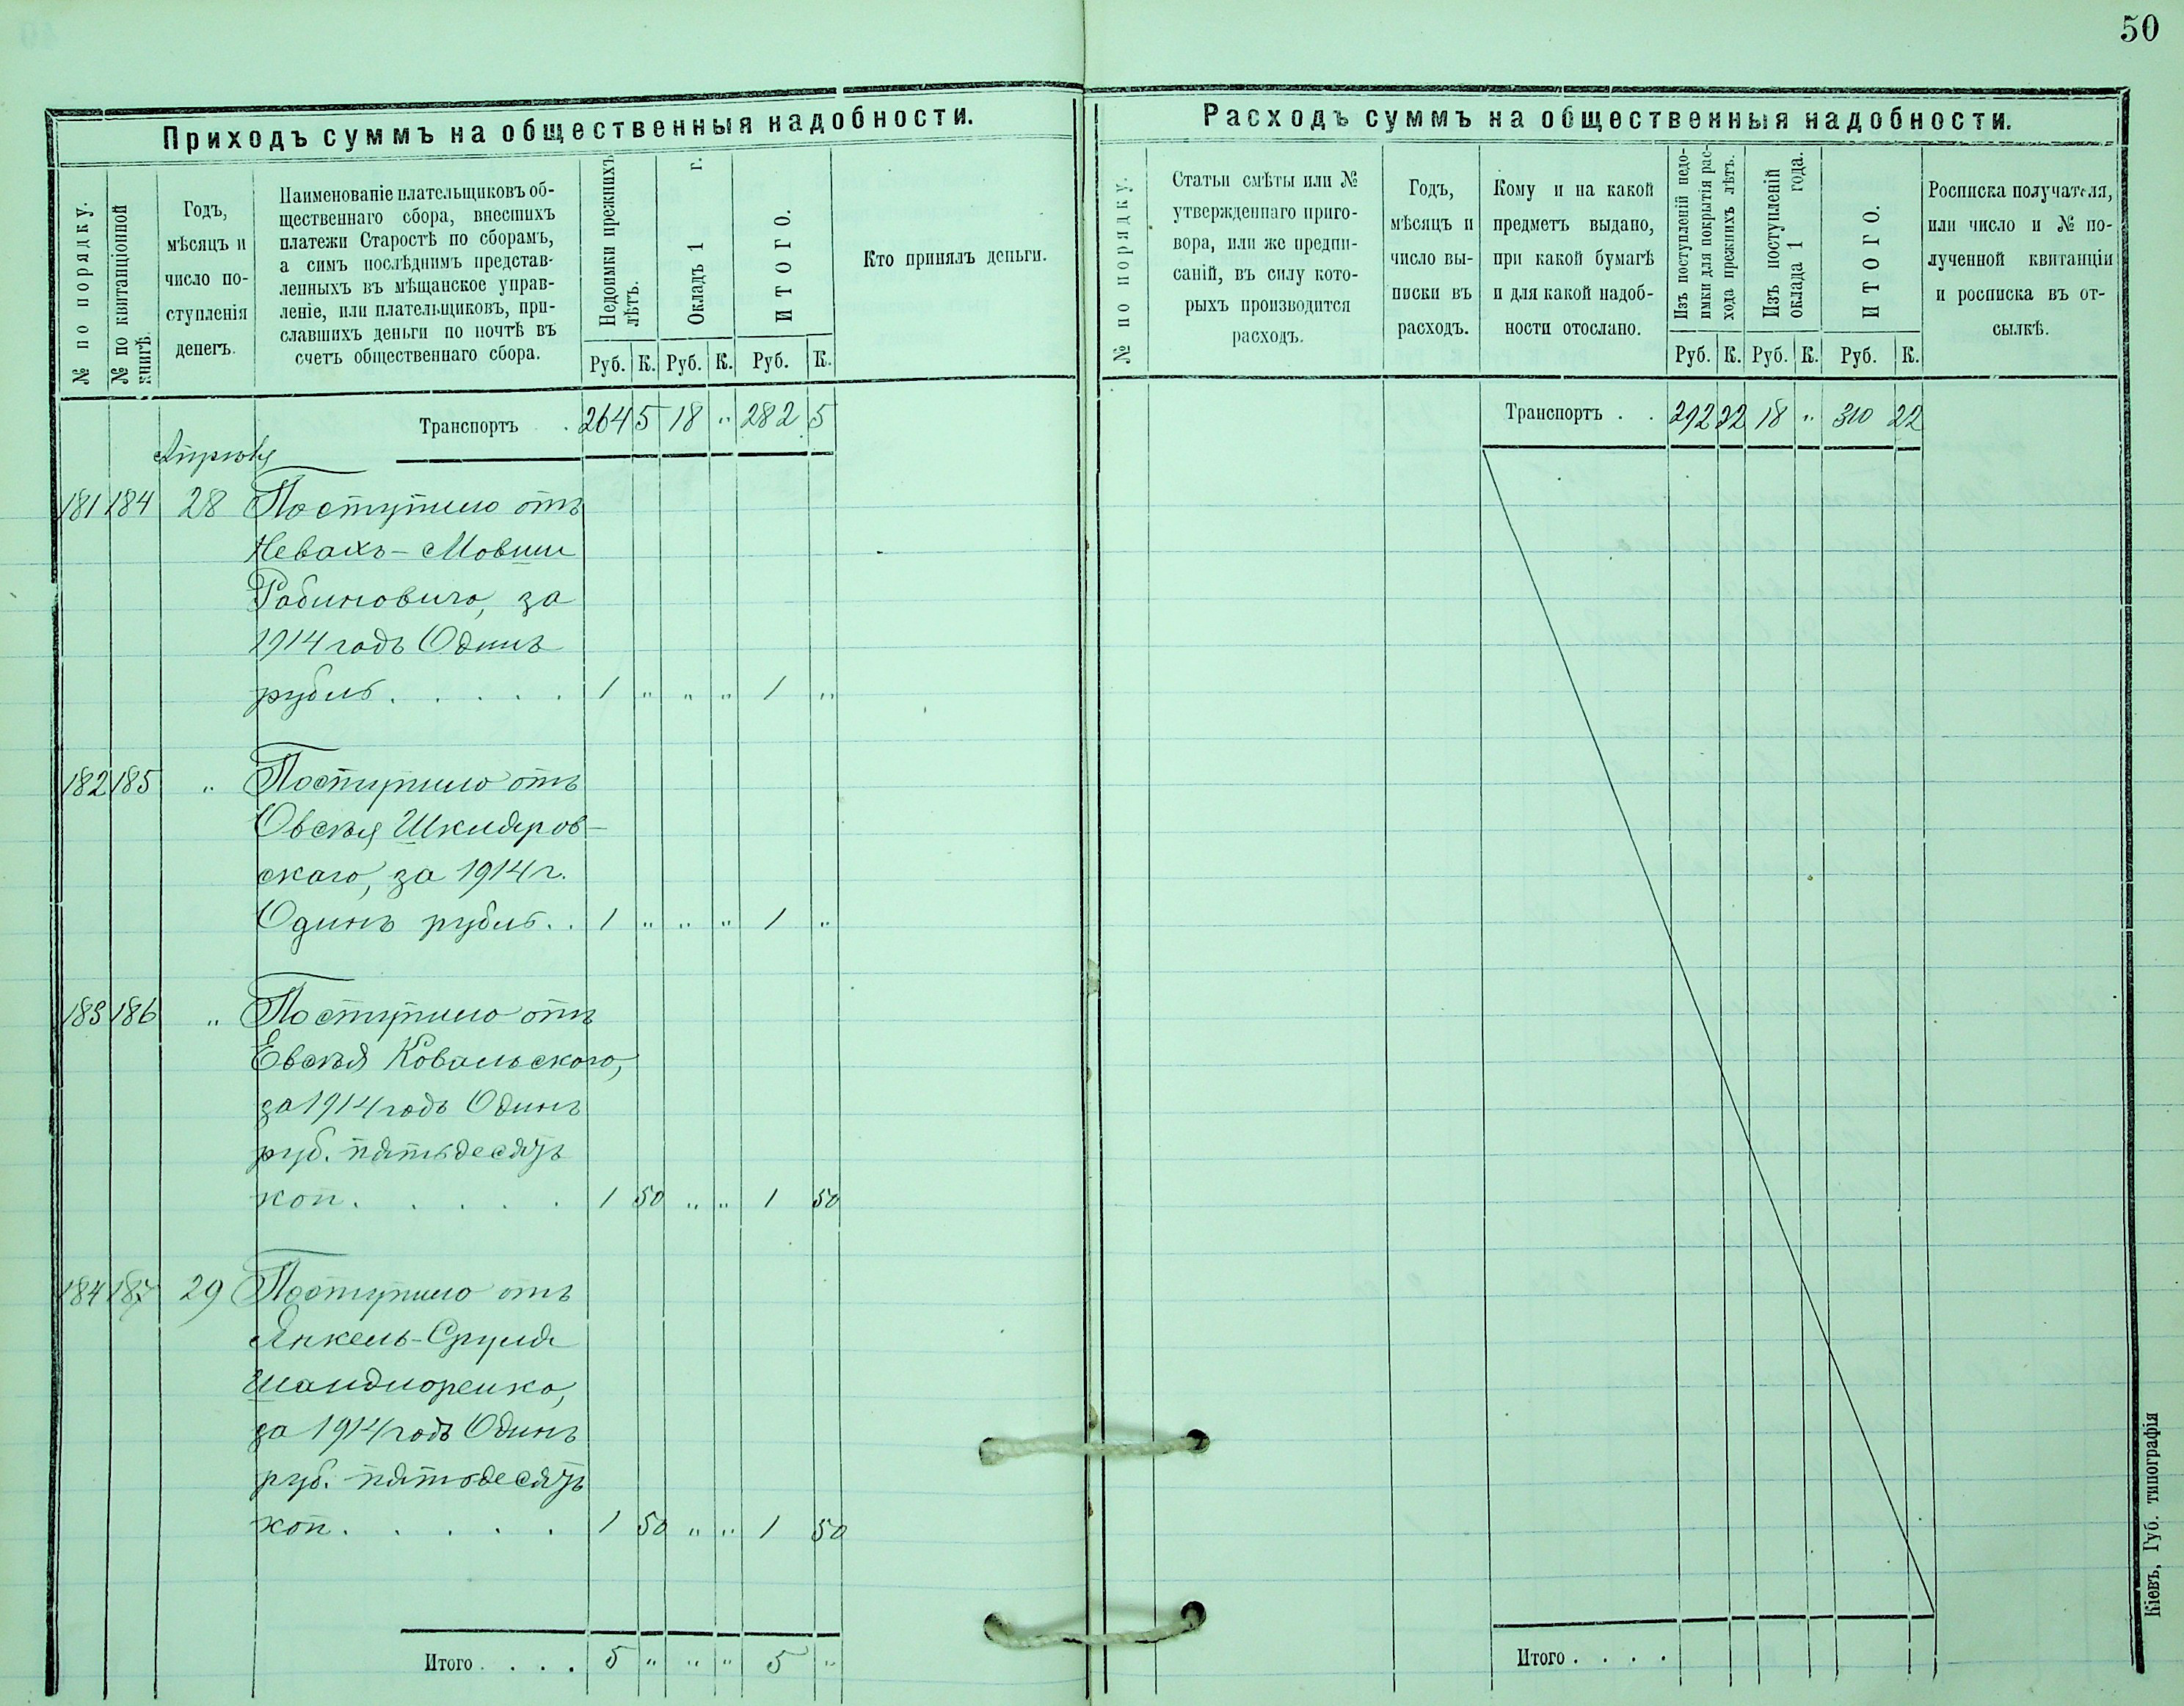 50
Приходъ суммъ на общественныя надобности.
№ по порядку.
№ по квитанціонной книгѣ.
Годъ,
мѣсяцъ и
число по-
ступленія
денегъ.
Наименованіе плательщиковъ об-
щественнаго сбора, внесшихъ
платежи Старостѣ по сборамъ,
а симъ послѣднимъ представ-
ленныхъ въ мѣщанское управ-
леніе, или плательщиковъ, при-
славшихъ деньги по почтѣ въ
счетъ общественнаго сбора.
Недоимки прежнихъ
лѣтъ.
Окладъ 1 г.
ИТОГО.
Кто принялъ деньги.
Руб. К. Руб. К. Руб. К.
Транспортъ . 264 5 18 " 282 5
Апрѣля
181 184 28 Поступило отъ
Невахъ-Мовши
Рабиновича, за
1914 годъ Одинъ
рубль. . . . . 1 " " " 1 "
182 185 " Поступило отъ
Овсѣя Шкляров-
скаго, за 1914 г.
Одинъ рубль. . 1 " " " 1 "
183 186 " Поступило отъ
Евсѣя Ковальского,
за 1914 годъ Одинъ
руб. пятьдесятъ
коп. . . . . 1 50 " " 1 50
184 187 29 Поступило отъ
Янкель-Сруля
Шандоренко,
за 1914 годъ Одинъ
руб. пятьдесятъ
коп. . . . . 1 50 " " 1 50
Итого . . . . 5 " " " 5 "
Расходъ суммъ на общественныя надобности.
№ по порядку.
Статьи смѣты или №
утвержденнаго приго-
вора, или же предпи-
саній, въ силу кото-
рыхъ производится
расходъ.
Годъ,
мѣсяцъ и
число вы-
писки въ
расходъ.
Кому и на какой
предметъ выдано,
при какой бумагѣ
и для какой надоб-
ности отослано.
Изъ поступленій недо-
имки для покрытія рас-
хода прежнихъ лѣтъ.
Изъ поступленій
оклада 1 года.
ИТОГО.
Росписка получателя,
или число и № по-
лученной квитанціи
и росписка въ от-
сылкѣ.
Руб. К. Руб. К. Руб. К.
Транспортъ . . 292 22 18 " 310 22
Итого . . . .
Кіевъ, Губ. типографія